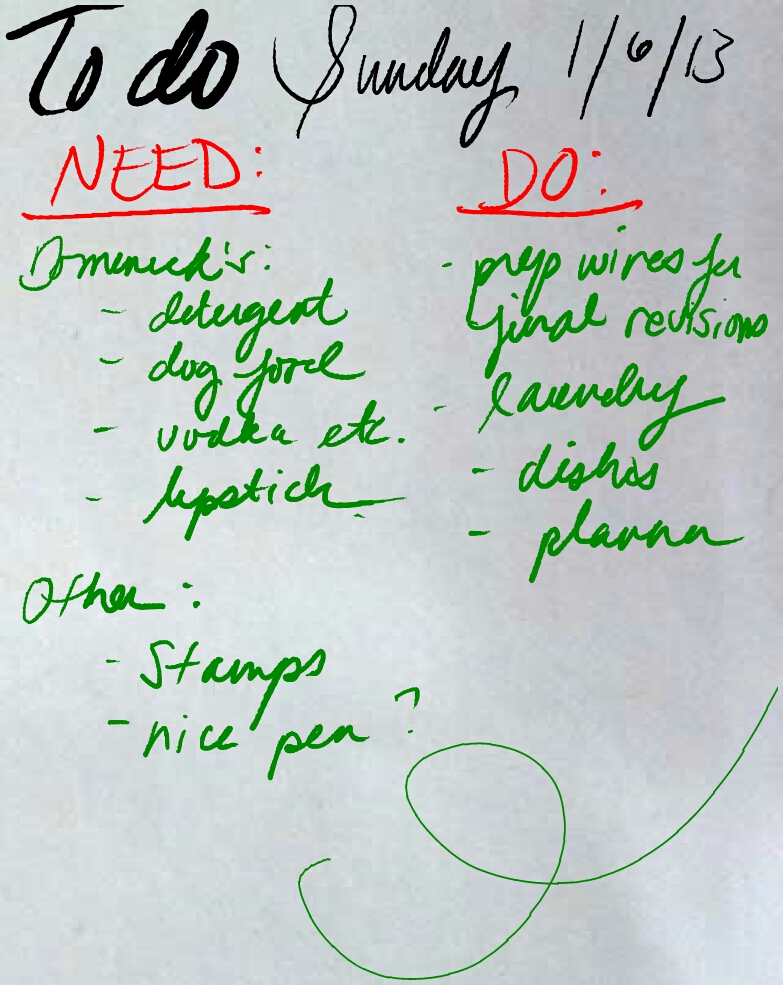 To do Sunday 1/6/13
NEED:
Dominick's:
- detergent
- dog food
- vodka etc.
- lipstick
Other:
- Stamps
- nice pen ?
DO:
- prep wires for
final revisions
- laundry
- dishes
- planner